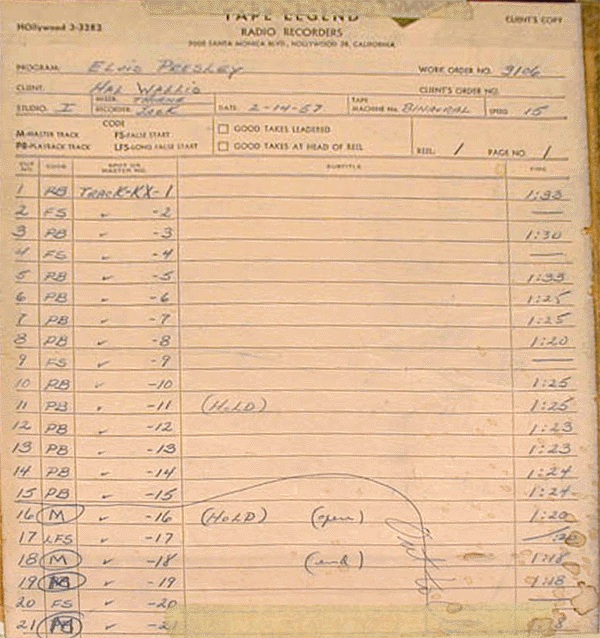 TAPE LEGEND
Hollywood 3-3282 CLIENT'S COPY
RADIO RECORDERS
7000 SANTA MONICA BLVD., HOLLYWOOD 38, CALIFORNIA
PROGRAM: ELVIS PRESLEY WORK ORDER NO. 3106
CLIENT: HAL WALLIS CLIENT'S ORDER NO.
STUDIO: I MIXER: THORNE RECORDER: JACK DATE: 2-14-57 TAPE MACHINE No. BINAURAL SPEED 15
CODE
M-MASTER TRACK FS-FALSE START GOOD TAKES LEADERED
PB-PLAYBACK TRACK LFS-LONG FALSE START GOOD TAKES AT HEAD OF REEL REEL 1 PAGE NO. 1
CUT NO. CODE SPOT OR MASTER NO. SUBTITLE TIME
1 PB TRACK-KX-1 1:33
2 FS -2 —
3 PB -3 1:30
4 FS -4 —
5 PB -5 1:33
6 PB -6 1:25
7 PB -7 1:25
8 PB -8 1:20
9 FS -9 —
10 PB -10 1:25
11 PB -11 (HOLD) 1:25
12 PB -12 1:23
13 PB -13 1:23
14 PB -14 1:24
15 PB -15 1:24
16 M -16 (HOLD) (open) 1:20
17 LFS -17
18 M -18 (end) 1:18
19 -19 1:18
20 FS -20 —
21 -21